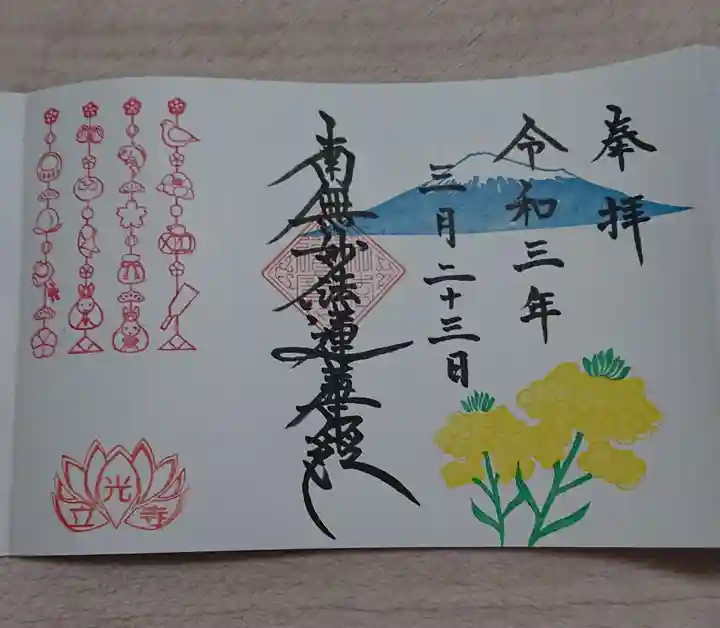 奉拝
令和三年
三月二十三日
南無妙法蓮華経
立光寺